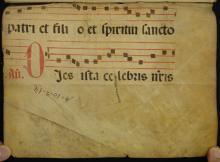 patri et fili o et spiritui sancto
Añ. O Jes ista celebris nr̄is